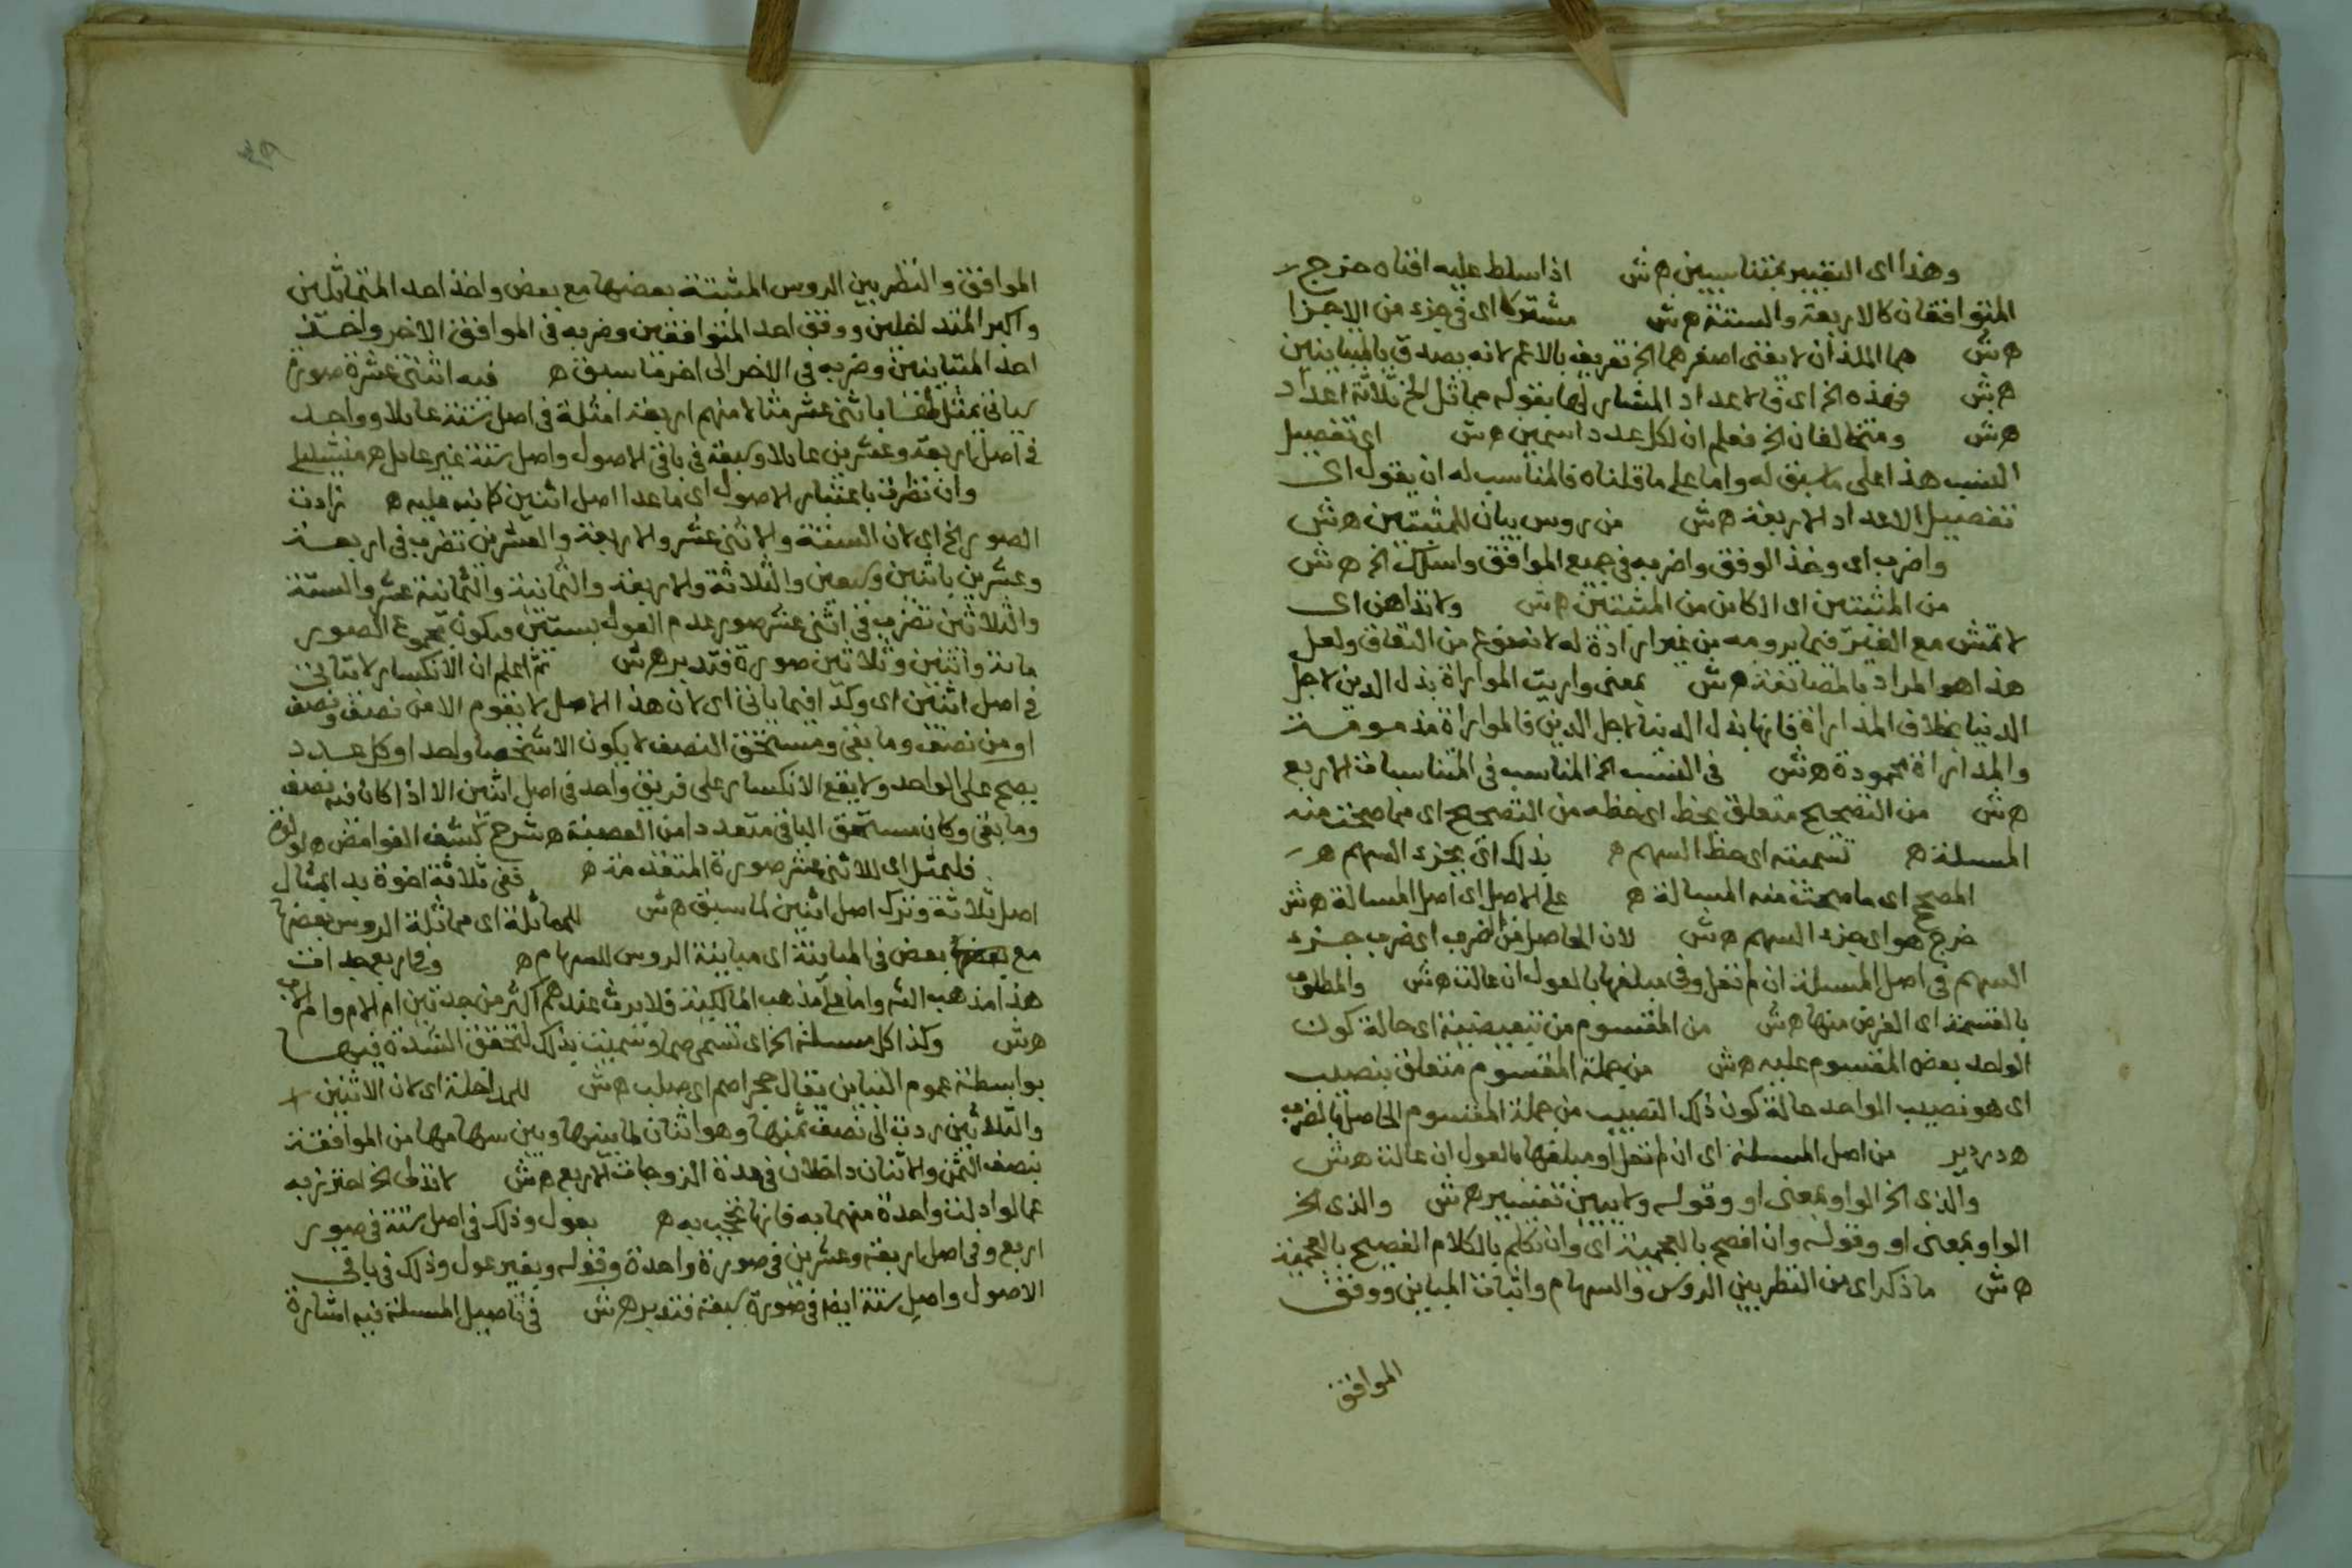 وهذا اى التعبير بمتناسبين ه ش اذا سلط عليه افناه مخرج
المتوافقان كالاربعة والستة ه ش مشتركا اى فى جزء من الاجزا
ه ش هما اللذان لا يفنى اصغرهما الخ تعريف بالاعم لانه يصدق بالمتباينين
ه ش فهذه الخ اى فالاعداد المشار لها بقوله مماثل الخ ثلاثة اعداد
ه ش ومتخالفان الخ فعلم ان لكل عدد اسمين ه ش اى تفصيل
النسب هذا على ما سبق له واما على ما قلناه فالمناسب له ان يقول اى
تفصيل الاعداد الاربعة ه ش من روس بيان للمثبتين ه ش
واضرب اى وخذ الوفق واضربه فى جميع الموافق واسلك الخ ه ش
من المثبتين اى الكاين من المثبتين ه ش ولا تداهن اى
لا تمش مع الغير فيما يرومه من غير ارادة له لانه نوع من النفاق ولعل
هذا هو المراد بالمصانعة ه ش بمعنى واريت المواراة بذل الدين لاجل
الدنيا بخلاف المداراة فانها بذل الدنيا لاجل الدين فالمواراة مذمومة
والمداراة محمودة ه ش فى النسب الخ المناسب فى المتناسبات الاربع
ه ش من التصحيح متعلق بحظ اى حظه من التصحيح اى مما صحت منه
المسئلة ه تسميته اى حظ السهم ه بذلك اى بجزء السهم ه
المصحح اى ما صحت منه المسالة ه على الاصل اى اصل المسالة ه ش
خرج هو اى جزء السهم ه ش لان الحاصل من الضرب اى ضرب جزء
السهم فى اصل المسئلة ان لم تعل وفى مبلغها بالعول ان عالت ه ش والمطلوب
بالقسمة اى الغرض منها ه ش من المقسوم من تبعيضية اى حالة كون
الواحد بعض المقسوم عليه ه ش من جملة المقسوم متعلق بنصيب
اى هو نصيب الواحد حالة كون ذلك النصيب من جملة المقسوم الحاصل بالضرب
ه دردير من اصل المسئلة اى ان لم تعل او مبلغها بالعول ان عالت ه ش
والذى الخ الواو بمعنى او وقوله ولا يبين تفسير ه ش والذى الخ
الواو بمعنى او وقوله وان افصح بالعجمية اى وان تكلم بالكلام الفصيح بالعجمية
ه ش ما ذكر اى من النظر بين الروس والسهام واثبات المباين ووفق
الموافق
الموافق والنظر بين الروس المثبتة بعضها مع بعض واخذ احد المتماثلين
واكبر المتداخلين ووفق احد المتوافقين وضربه فى الموافق الاخر واخذ
احد المتباينين وضربه فى الاخر الى اخر ما سبق ه فيه اثنتى عشرة صورة
ياتى بمثل باثنى عشر مثالا منهم اربعة امثلة فى اصل ستة عايلا وواحد
فى اصل اربعة وعشرين عايلا وسبعة فى باقى الاصول واصل ستة غير عايل ه
وان نظرت باعتبار الاصول اى ما عدا اصل اثنين كما نبه عليه ه زادت
الصور الخ اى لان الستة والاثنى عشر والاربعة والعشرين تضرب فى اربعة
وعشرين باثنين وسبعين والثلاثة والاربعة والثمانية والثمانية عشر والستة
والثلاثين تضرب فى اثنى عشر صور عدم العول بستين ويكون مجموع الصور
مائة واثنين وثلاثين صورة فتدبر ه ش ثم اعلم ان الانكسار لا يتاتى
فى اصل اثنين اى وكذا فيما ياتى اى لان هذا الاصل لا يقوم الا من نصف ونصف
او من نصف وما بقى ومستحق النصف لا يكون الا شخصا واحدا وكل عدد
يصح على الواحد ولا يقع الانكسار على فريق واحد فى اصل اثنين الا اذا كان فيه نصف
وما بقى وكان مستحق الباقى متعددا من العصبة ه شرح كشف الغوامض ه
فلنمثل اى للاثنى عشر صورة المتقدمة ه ففى ثلاثة اخوة بدا بمثال
اصل ثلاثة وترك اصل اثنين لما سبق ه ش للمماثلة اى مماثلة الروس بعضها
مع بعض فى المباينة اى مباينة الروس للسهام ه وفى اربع جدات
هذا مذهب الشم واما على مذهب المالكية فلا يرث عندهم اكثر من جدتين ام الام وام الاب
ه ش وكذا كل مسئلة الخ اى تسمى صما وسميت بذلك لتحقق الشدة فيها
بواسطة عموم التباين يقال حجر اصم اى صلب ه ش للمداخلة اى لان الاثنين
والثلاثين ردت الى نصف ثمنها وهو اثنان لما بينها وبين سهامها من الموافقة
بنصف الثمن والاثنان داخلان فى عدة الزوجات الاربع ه ش لا تدلى الخ احترز به
عما لو ادلت واحدة منهما به فانها تحجب به ه بعول وذلك فى اصل ستة فى صور
اربع وفى اصل اربعة وعشرين فى صورة واحدة وقوله وبغير عول وذلك فى باقى
الاصول واصل ستة ايضا فى صورة سبعة فتدبر ه ش فى تاصيل المسئلة فيه اشارة